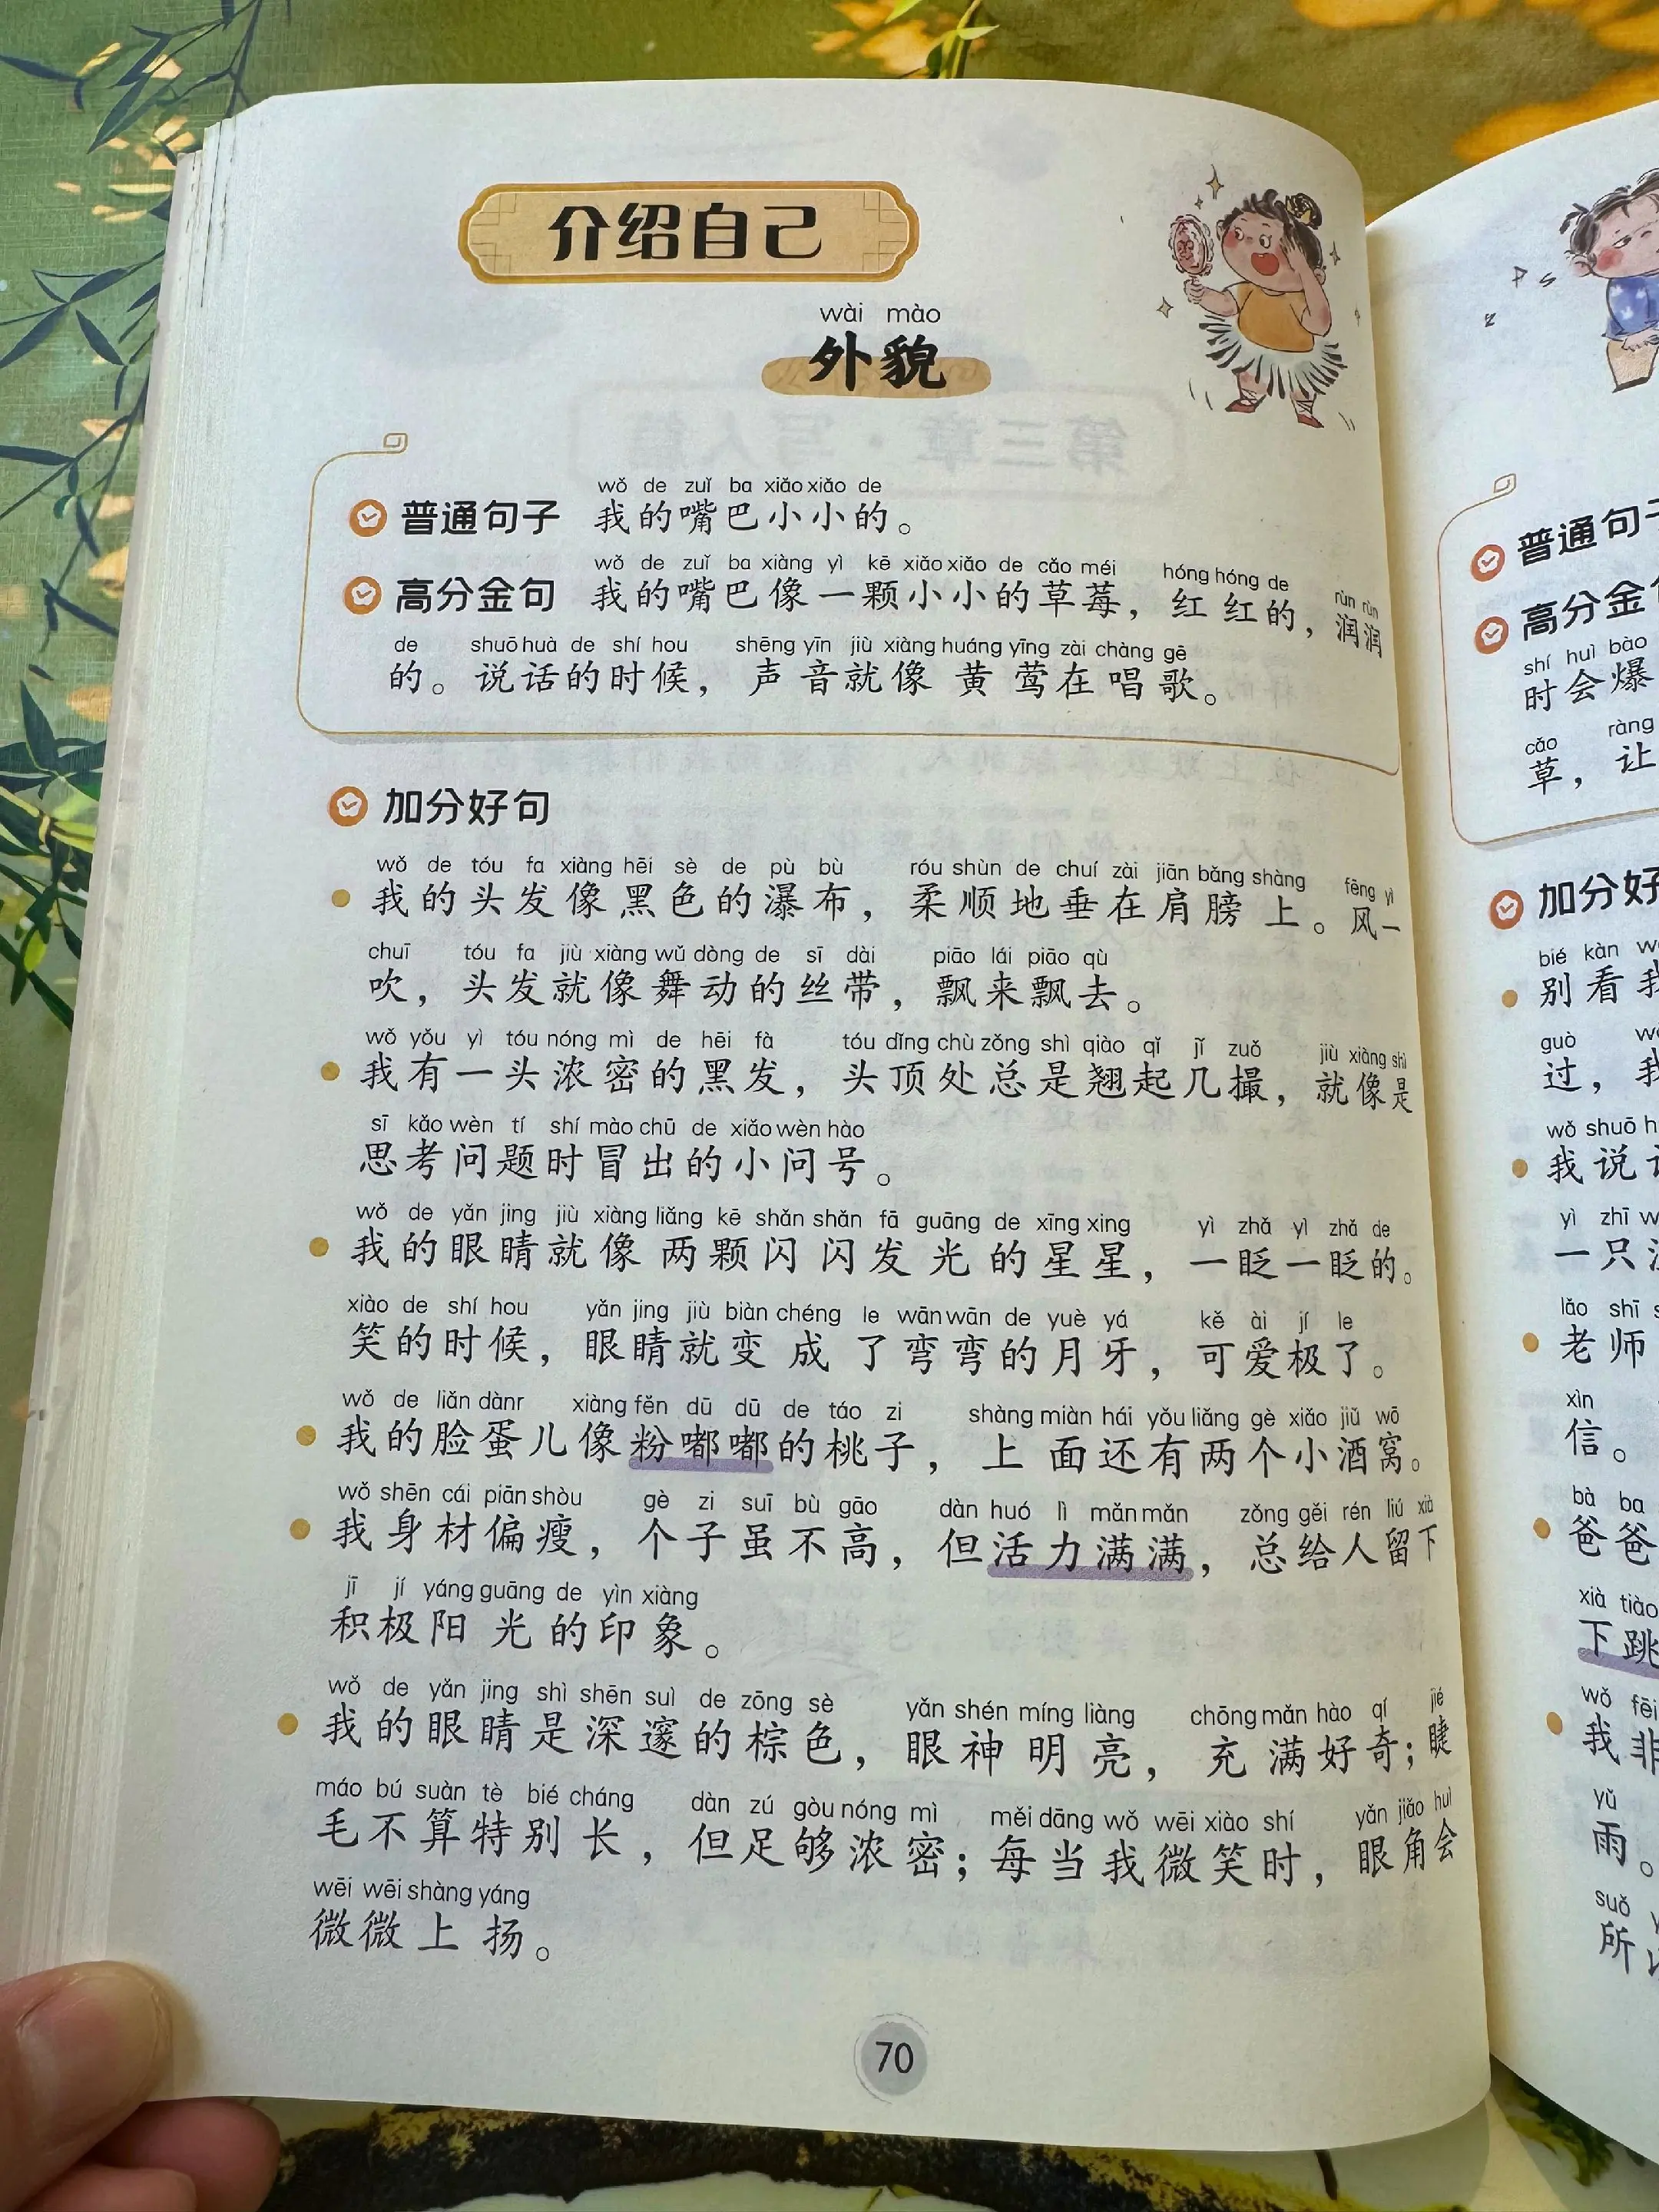 介绍自己
wài mào
外貌
wǒ de zuǐ ba xiǎo xiǎo de
普通句子 我的嘴巴小小的。
wǒ de zuǐ ba xiàng yì kē xiǎo xiǎo de cǎo méi hóng hóng de rùn rùn
高分金句 我的嘴巴像一颗小小的草莓，红红的，润润
de shuō huà de shí hou shēng yīn jiù xiàng huáng yīng zài chàng gē
的。说话的时候，声音就像黄莺在唱歌。
加分好句
wǒ de tóu fa xiàng hēi sè de pù bù róu shùn de chuí zài jiān bǎng shàng fēng yì
我的头发像黑色的瀑布，柔顺地垂在肩膀上。风一
chuī tóu fa jiù xiàng wǔ dòng de sī dài piāo lái piāo qù
吹，头发就像舞动的丝带，飘来飘去。
wǒ yǒu yì tóu nóng mì de hēi fà tóu dǐng chù zǒng shì qiào qǐ jǐ zuǒ jiù xiàng shì
我有一头浓密的黑发，头顶处总是翘起几撮，就像是
sī kǎo wèn tí shí mào chū de xiǎo wèn hào
思考问题时冒出的小问号。
wǒ de yǎn jing jiù xiàng liǎng kē shǎn shǎn fā guāng de xīng xing yì zhǎ yì zhǎ de
我的眼睛就像两颗闪闪发光的星星，一眨一眨的。
xiào de shí hou yǎn jing jiù biàn chéng le wān wān de yuè yá kě ài jí le
笑的时候，眼睛就变成了弯弯的月牙，可爱极了。
wǒ de liǎn dànr xiàng fěn dū dū de táo zi shàng miàn hái yǒu liǎng gè xiǎo jiǔ wō
我的脸蛋儿像粉嘟嘟的桃子，上面还有两个小酒窝。
wǒ shēn cái piān shòu gè zi suī bù gāo dàn huó lì mǎn mǎn zǒng gěi rén liú xià
我身材偏瘦，个子虽不高，但活力满满，总给人留下
jī jí yáng guāng de yìn xiàng
积极阳光的印象。
wǒ de yǎn jing shì shēn suì de zōng sè yǎn shén míng liàng chōng mǎn hào qí jié
我的眼睛是深邃的棕色，眼神明亮，充满好奇；睫
máo bú suàn tè bié cháng dàn zú gòu nóng mì měi dāng wǒ wēi xiào shí yǎn jiǎo huì
毛不算特别长，但足够浓密；每当我微笑时，眼角会
wēi wēi shàng yáng
微微上扬。
70
普通句子
高分金
shí huì bào
时会爆
cǎo ràng
草，让
加分好
bié kàn
别看我
guò
过，我
wǒ shuō
我说
yì zhī
一只
lǎo shī
老师
xìn
信。
bà ba
爸爸
xià tiào
下跳
wǒ fēi
我非
yǔ
雨。
suǒ
所